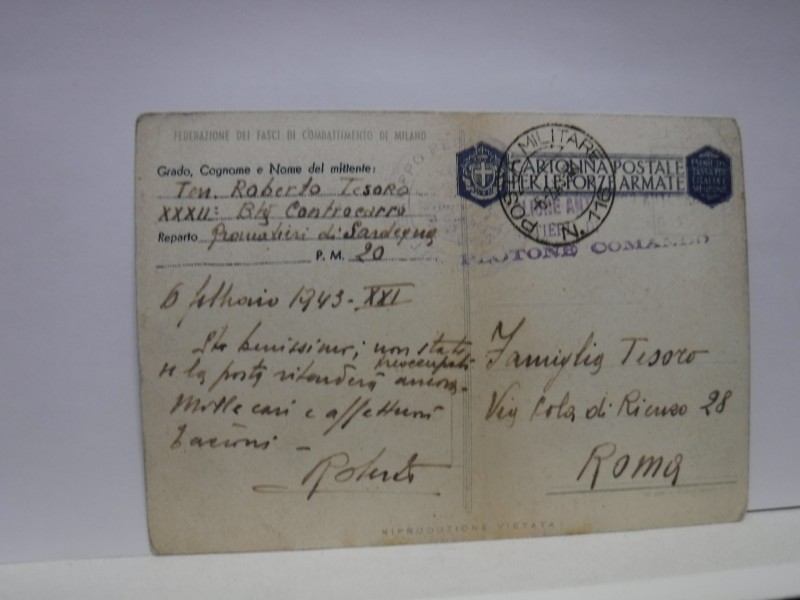 FEDERAZIONE DEI FASCI DI COMBATTIMENTO DI MILANO
Grado, Cognome e Nome del mittente:
Ten. Roberto Tesoro
XXXII: Btg Controcarro
Reparto Granatieri di Sardegna
P. M. 20
6 febbraio 1943-XXI
Sto benissimo; non state
preoccupati
se la posta ritarderà ancora.
Molte cari e affettuosi
bacioni -
Roberto
POSTA MILITARE
N. 110
CARTOLINA POSTALE
PER LE FORZE ARMATE
PLOTONE COMANDO
Famiglia Tesoro
Via Cola di Rienzo 28
ROMA
RIPRODUZIONE VIETATA